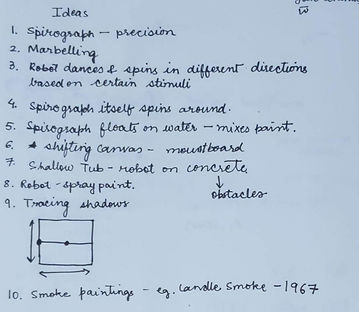 Ideas
1. Spirograph — precision
2. Marbelling
3. Robot dances & spins in different directions
based on certain stimuli
4. Spirograph itself spins around.
5. Spirograph floats on water — mixes paint.
6. shifting canvas - mountboard
7. Shallow Tub - robot on concrete
obstacles
8. Robot - spray paint.
9. Tracing shadows
10. Smoke paintings - eg. Candle Smoke - 1967